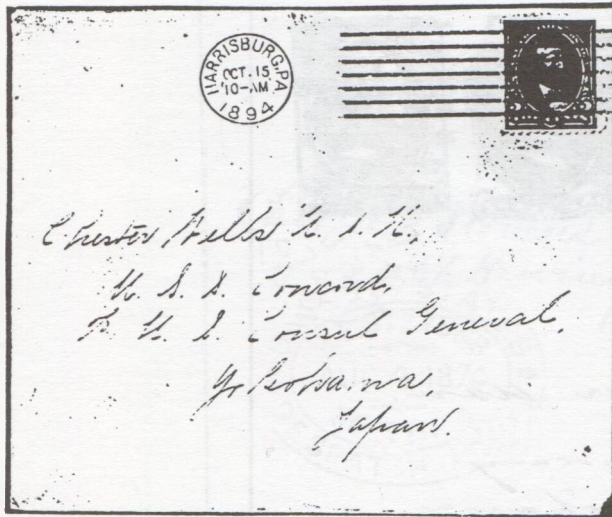 HARRISBURG, PA.
OCT. 15
10-AM
1894
Chester Wells U. S. N.,
U. S. S. Concord,
U. S. Consul General,
Yokohama,
Japan.